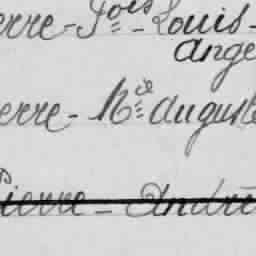 erre-Fois-Louis-
ange
erre-Mie auguste
Pierre-André